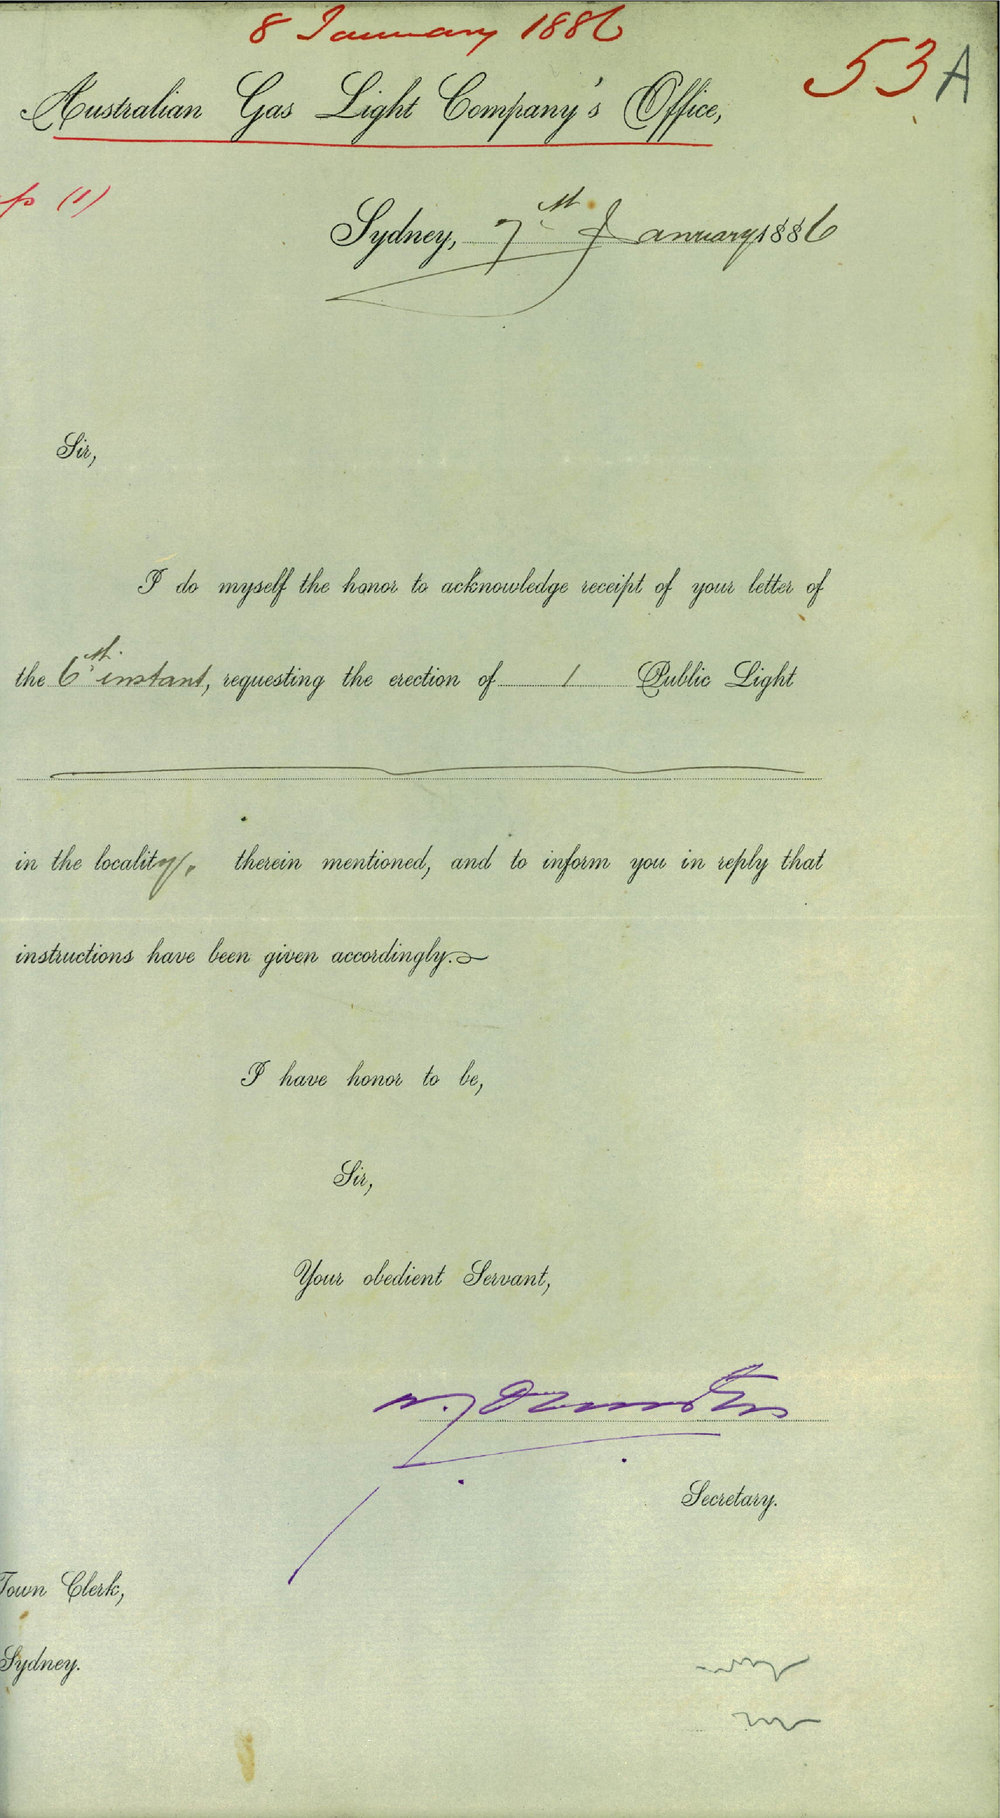 8 January 1886
53A
Australian Gas Light Company's Office,
(1)
Sydney, 7th January 1886
Sir,
I do myself the honor to acknowledge receipt of your letter of
the 6th instant, requesting the erection of 1 Public Light
in the locality, therein mentioned, and to inform you in reply that
instructions have been given accordingly.
I have honor to be,
Sir,
Your obedient Servant,
Secretary.
Town Clerk,
Sydney.